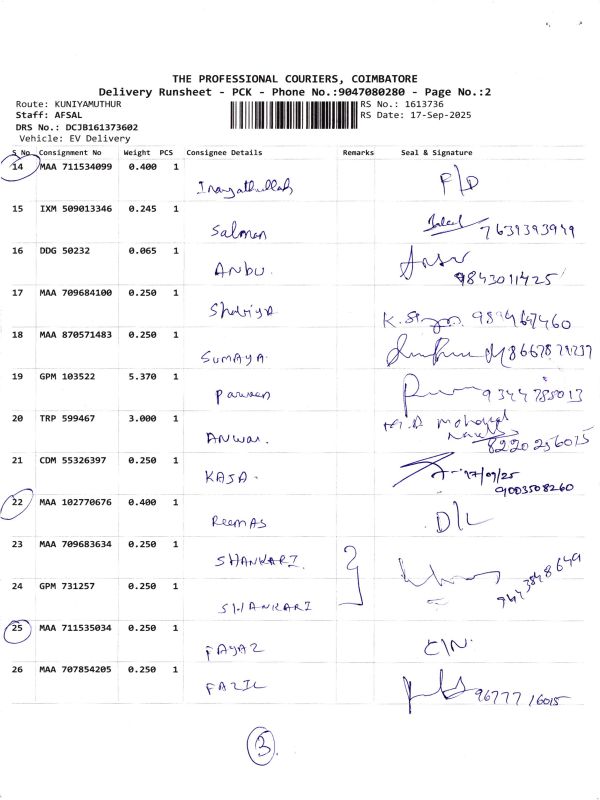 THE PROFESSIONAL COURIERS, COIMBATORE
Delivery Runsheet - PCK - Phone No.:9047080280 - Page No.:2
Route: KUNIYAMUTHUR RS No.: 1613736
Staff: AFSAL RS Date: 17-Sep-2025
DRS No.: DCJB161373602
Vehicle: EV Delivery
S No Consignment No Weight PCS Consignee Details Remarks Seal & Signature
14 MAA 711534099 0.400 1 Inayathullah F/D
15 IXM 509013346 0.245 1 Salman 7639393949
16 DDG 50232 0.065 1 ANBU. 9843011425
17 MAA 709684100 0.250 1
18 MAA 870571483 0.250 1 SUMAYA.
19 GPM 103522 5.370 1 Parveen 9344785013
20 TRP 599467 3.000 1 ANWAR. 8220256015
21 CDM 55326397 0.250 1 KAJA. 17/09/25
9003508260
22 MAA 102770676 0.400 1 ReemAS D/L
23 MAA 709683634 0.250 1 SHANKARI.
24 GPM 731257 0.250 1 SHANKARI 9443848649
25 MAA 711535034 0.250 1 FAYAZ C/N.
26 MAA 707854205 0.250 1 FAZIL 9677716015
3.